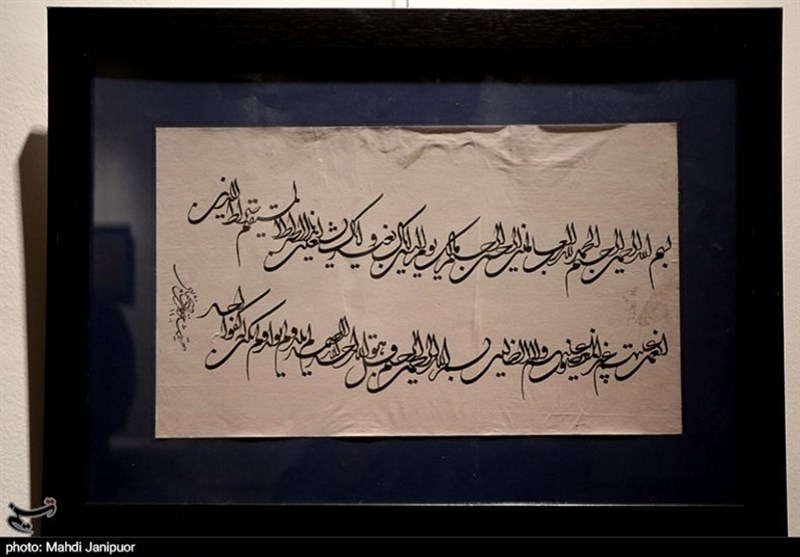 بسم الله الرحمن الرحیم الحمد لله رب العالمین الرحمن الرحیم مالک یوم الدین ایاک نعبد و ایاک نستعین اهدنا الصراط المستقیم صراط الذین
انعمت علیهم غیر المغضوب علیهم ولا الضالین بسم الله الرحمن الرحیم قل هو الله احد الله الصمد لم یلد ولم یولد ولم یکن له کفوا احد
photo: Mahdi Janipuor